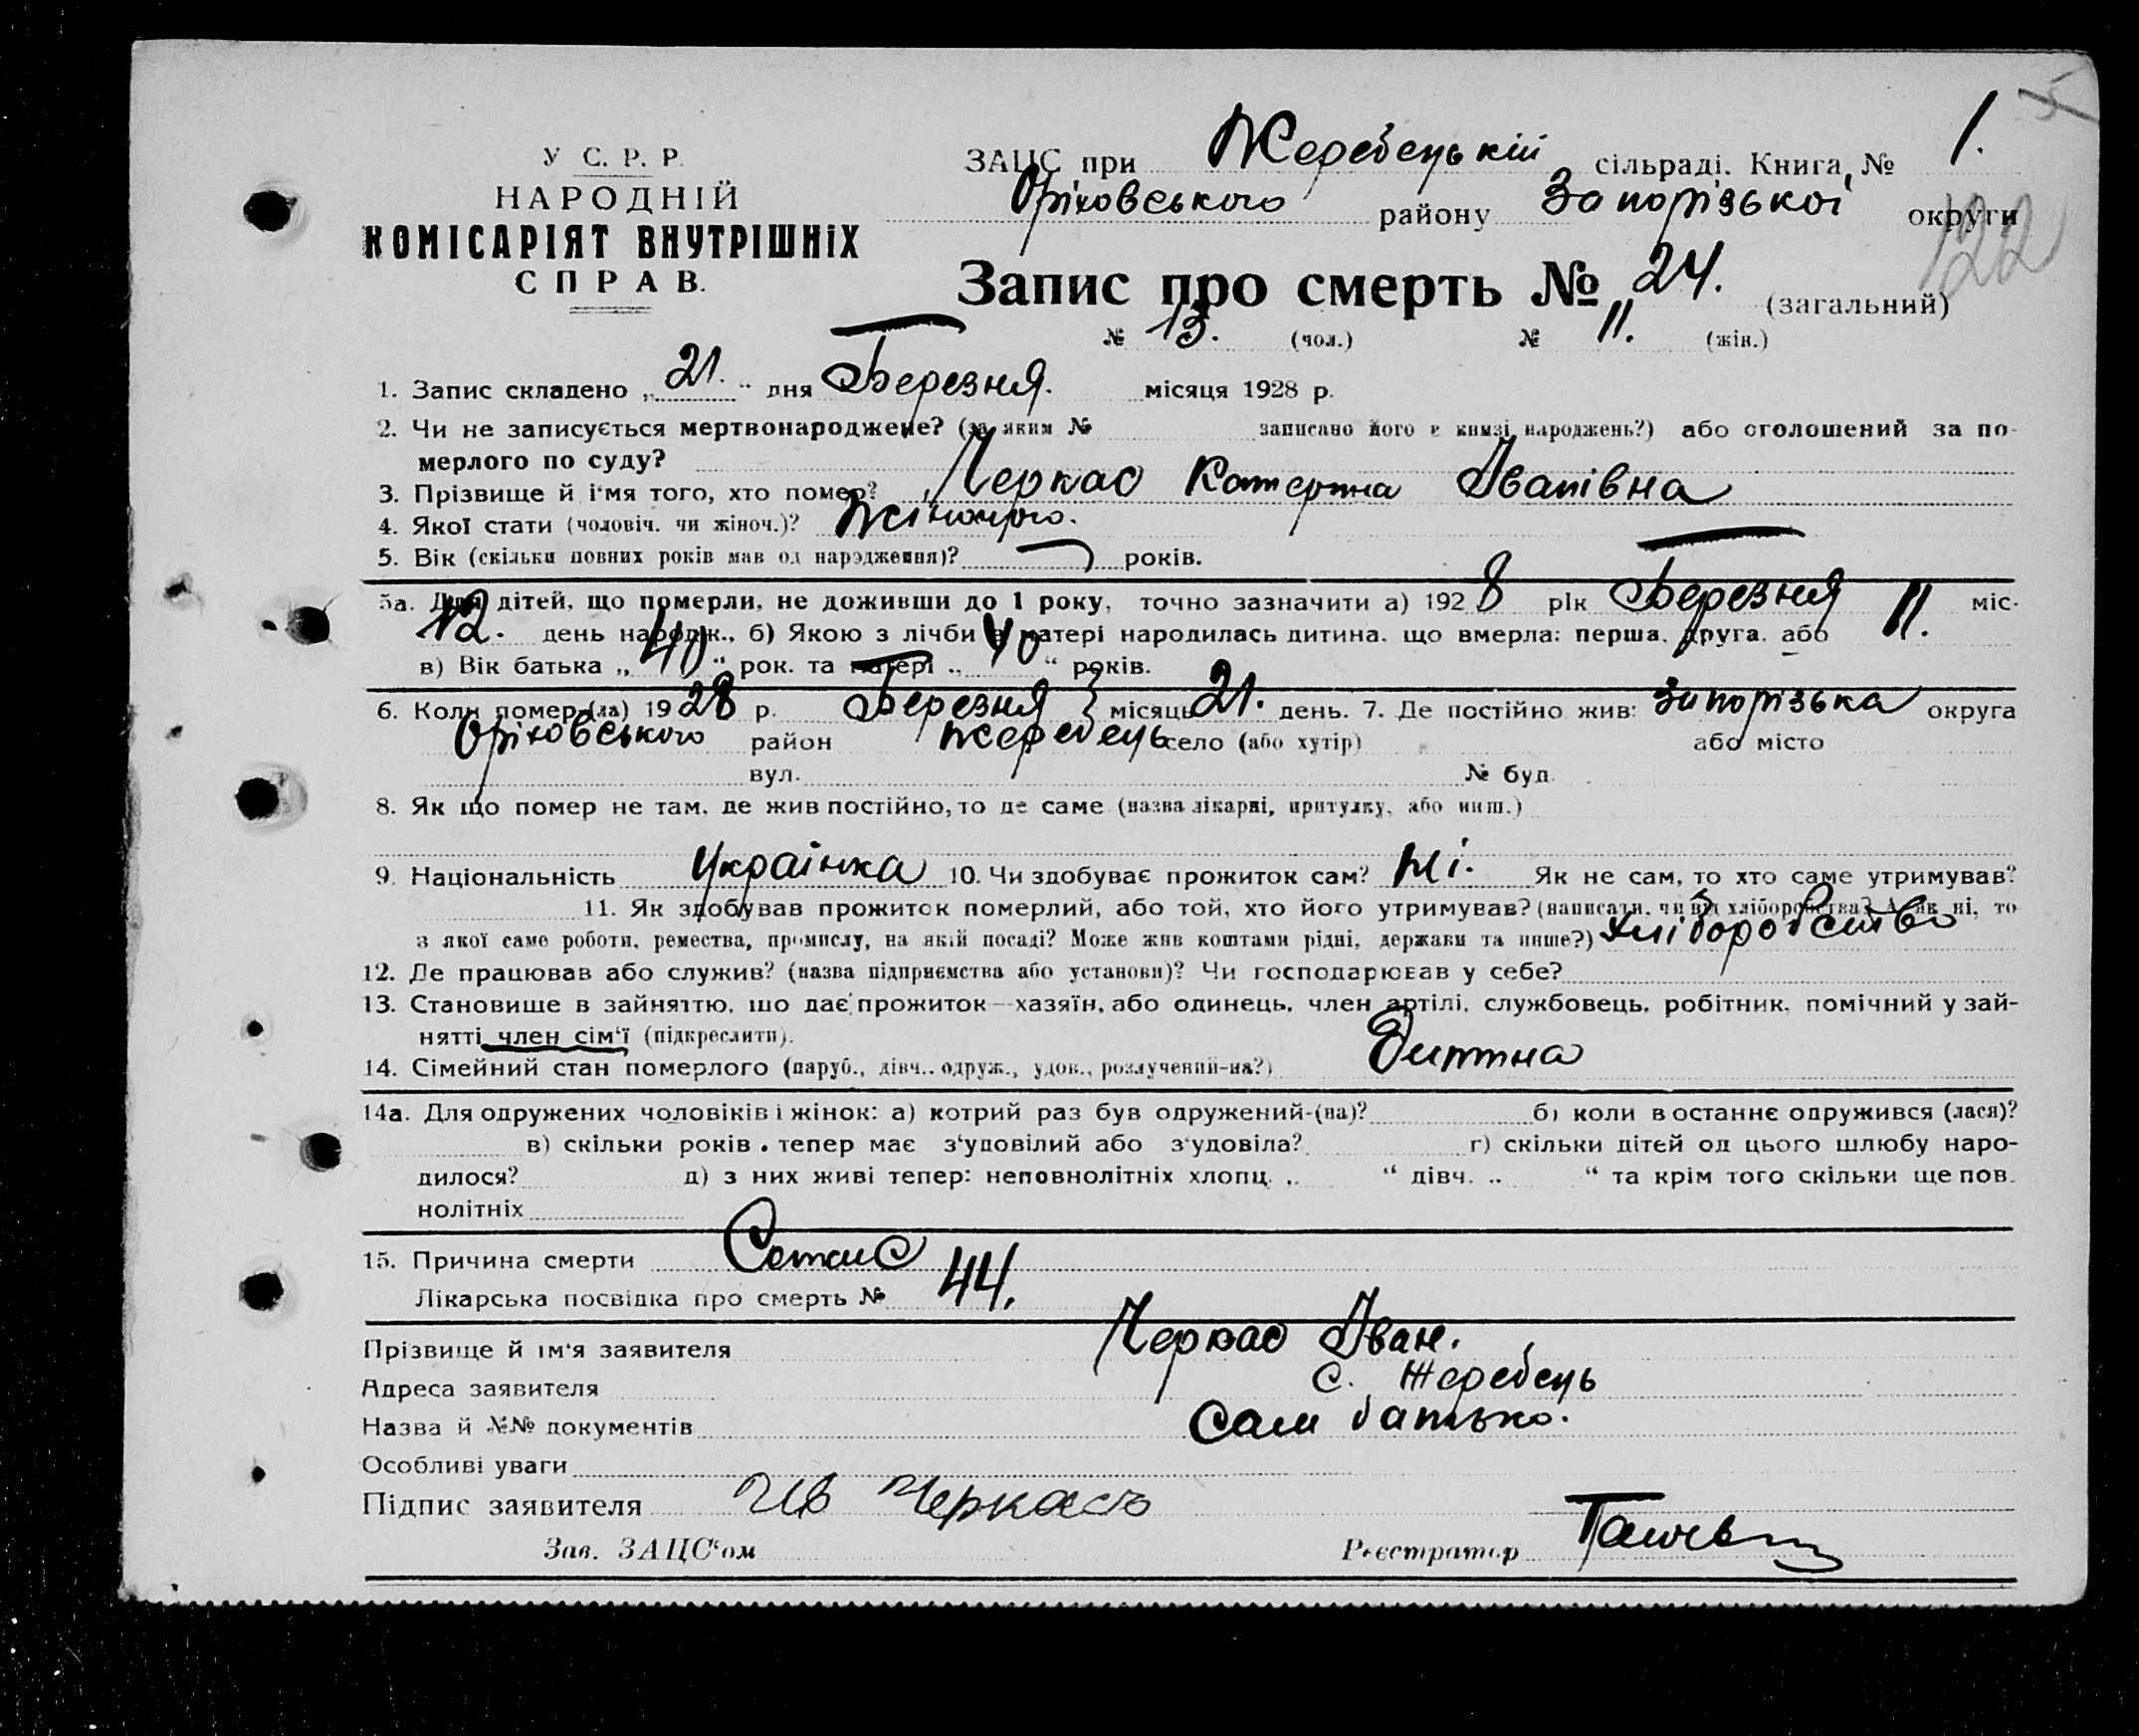 У С. Р. Р.
НАРОДНІЙ
КОМІСАРІЯТ ВНУТРІШНІХ
СПРАВ.
ЗАЦС при Жеребецькій сільраді. Книга № 1.
Оріховського району Запорізької округи
122
Запис про смерть № 24. (загальний)
№ 13. (чол.) № 11. (жін.)
1. Запис складено „21." дня Березня. місяця 1928 р.
2. Чи не записується мертвонароджене? (за яким № записано його в книзі народжень?) або оголошений за по-
мерлого по суду?
3. Прізвище й і'мя того, хто помер? Черкас Катерина Іванівна
4. Якої статі (чоловіч. чи жіноч.)? Жіночого.
5. Вік (скільки повних років мав од народження)? років.
5а. Для дітей, що померли, не доживши до 1 року, точно зазначити а) 1928 рік Березня міс.
12. день народж., б) Якою з лічби в матері народилась дитина, що вмерла: перша, друга, або 11.
в) Вік батька „40" рок. та матері „40" років.
6. Коли помер (ла) 1928 р. Березня місяць 21. день. 7. Де постійно жив: Запорізька округа
Оріховського район Жеребець село (або хутір) або місто
вул. № буд.
8. Як що помер не там, де жив постійно, то де саме (назва лікарні, притулку, або инш.)
9. Національність Українка 10. Чи здобуває прожиток сам? Ні. Як не сам, то хто саме утримував?
11. Як здобував прожиток померлий, або той, хто його утримував? (написати, чи від хліборобства? А як ні, то
з якої саме роботи, ремества, промислу, на якій посаді? Може жив коштами рідні, держави та инше?) Хліборобство
12. Де працював або служив? (назва підприємства або установи)? Чи господарював у себе?
13. Становище в зайняттю, що дає прожиток—хазяїн, або одинець, член артілі, службовець, робітник, помічний у зай-
нятті член сім'ї (підкреслити).
14. Сімейний стан померлого (паруб., дівч., одруж., удов., розлучений-на?) Дитина
14а. Для одружених чоловіків і жінок: а) котрий раз був одружений-(на)? б) коли в останнє одружився (лася)?
в) скільки років тепер має з'удовілий або з'удовіла? г) скільки дітей од цього шлюбу наро-
дилося? д) з них живі тепер: неповнолітніх хлопц. „ " дівч. „ " та крім того скільки ще пов.
нолітніх
15. Причина смерти
Лікарська посвідка про смерть № 44.
Прізвище й ім'я заявителя Черкас Іван.
Адреса заявителя с. Жеребець
Назва й №№ документів Сам батько.
Особливі уваги
Підпис заявителя Ив Черкасъ
Зав. ЗАЦС'ом Реєстратор